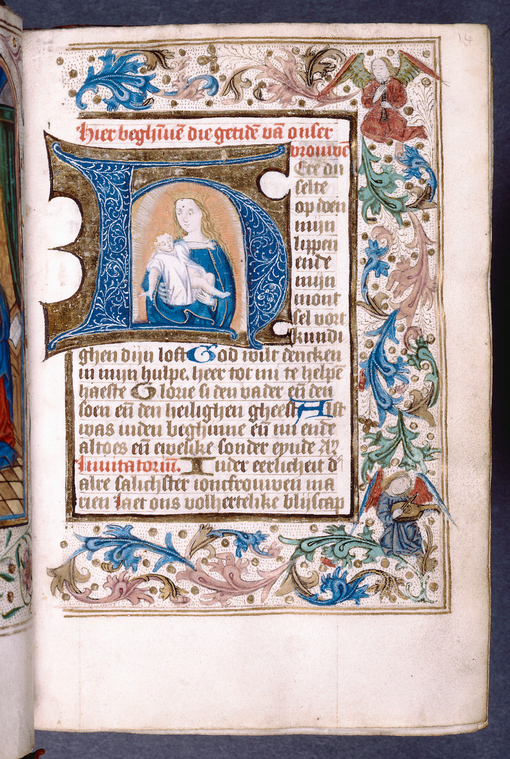 14
Hier beghīnē die getidē vā onser
vrouwe
Ere du
selte
op doen
mijn
lippen
ende
mijn
mont
sel vort
kundi
ghen dijn loff God wilt dencken
in mijn hulpe. heer tot mi te helpē
haeste Glorie si den vader eñ den
soen eñ den heilighen gheest Alst
was inden beghinne eñ nu ende
altoes eñ ewelike sonder eynde
Inuitatoriū. Inder eerlicheit dʼ
alre salichster ioncfrouwen ma
rien Iaet ons volhertelike blijscap